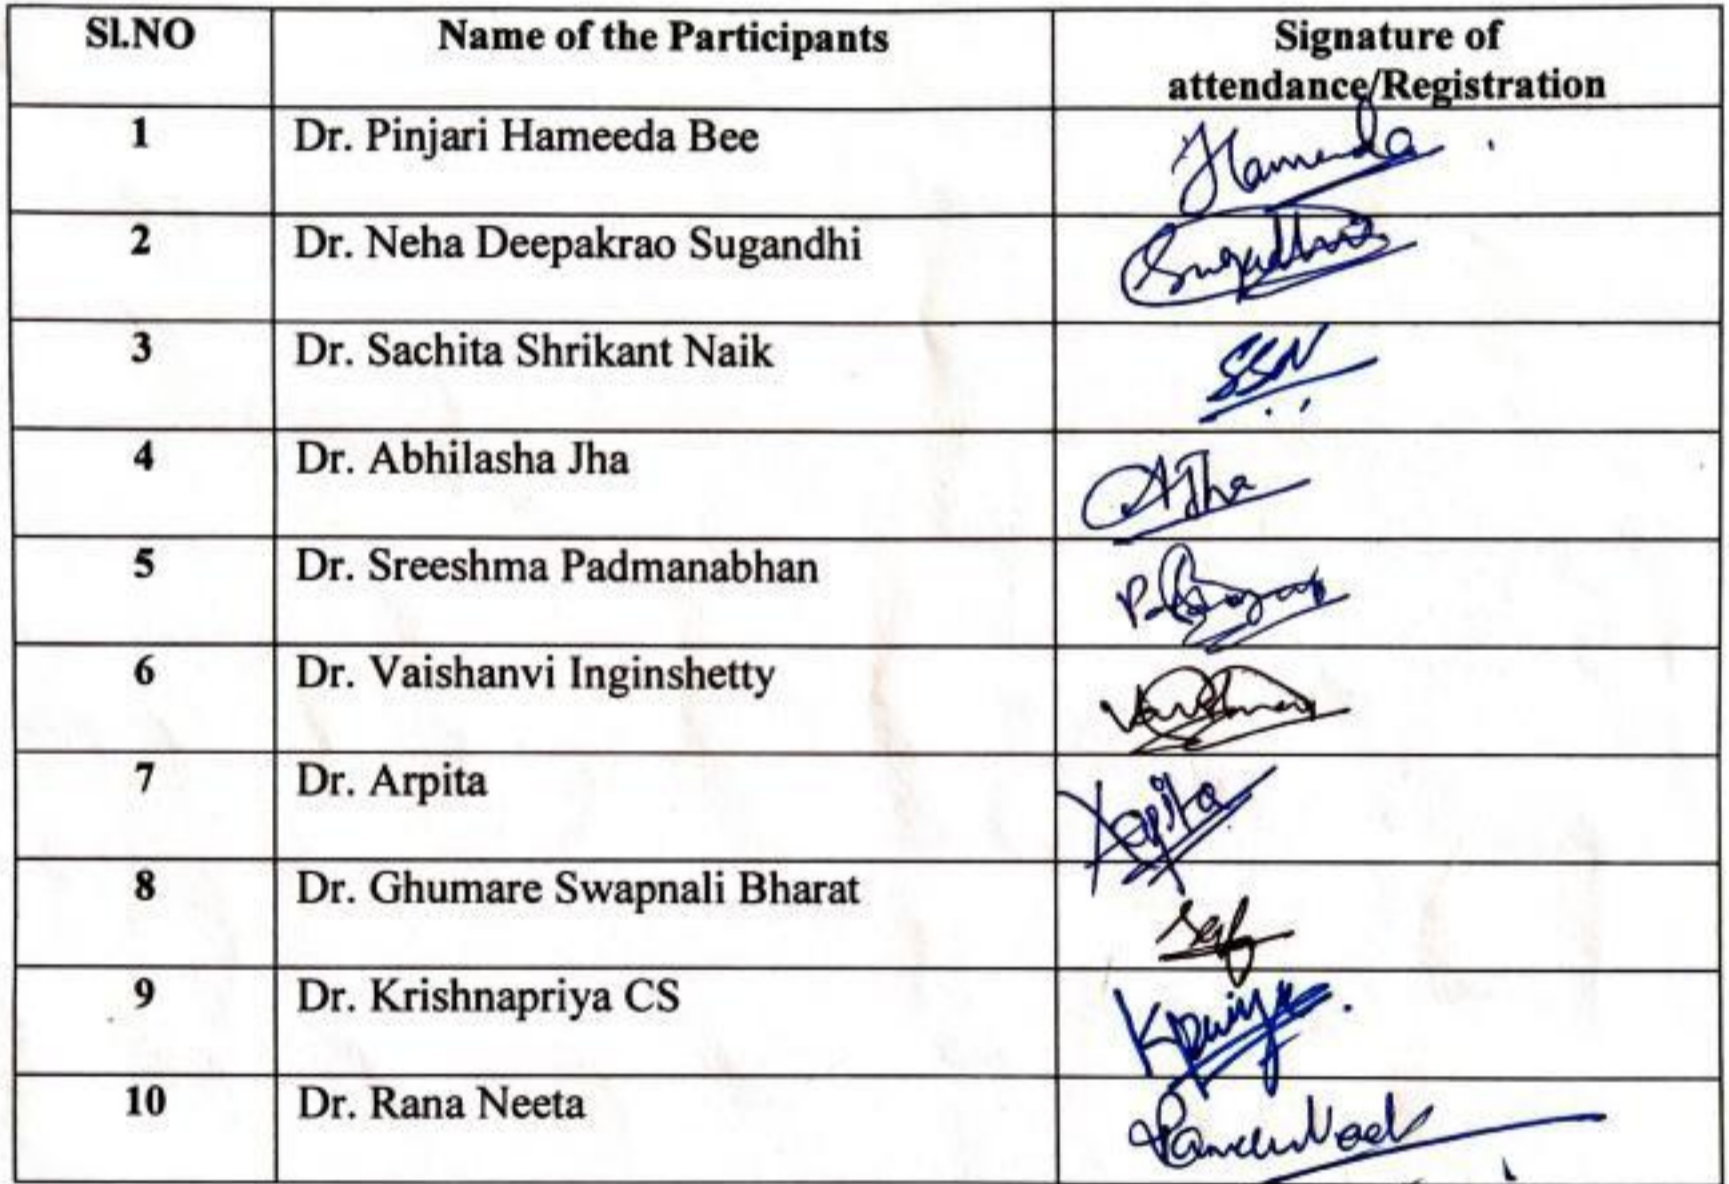 Sl.NO Name of the Participants Signature of
attendance/Registration
1 Dr. Pinjari Hameeda Bee Hameeda
2 Dr. Neha Deepakrao Sugandhi Sugandhi
3 Dr. Sachita Shrikant Naik SSN
4 Dr. Abhilasha Jha AJha
5 Dr. Sreeshma Padmanabhan
6 Dr. Vaishanvi Inginshetty
7 Dr. Arpita Arpita
8 Dr. Ghumare Swapnali Bharat
9 Dr. Krishnapriya CS Kpriya
10 Dr. Rana Neeta